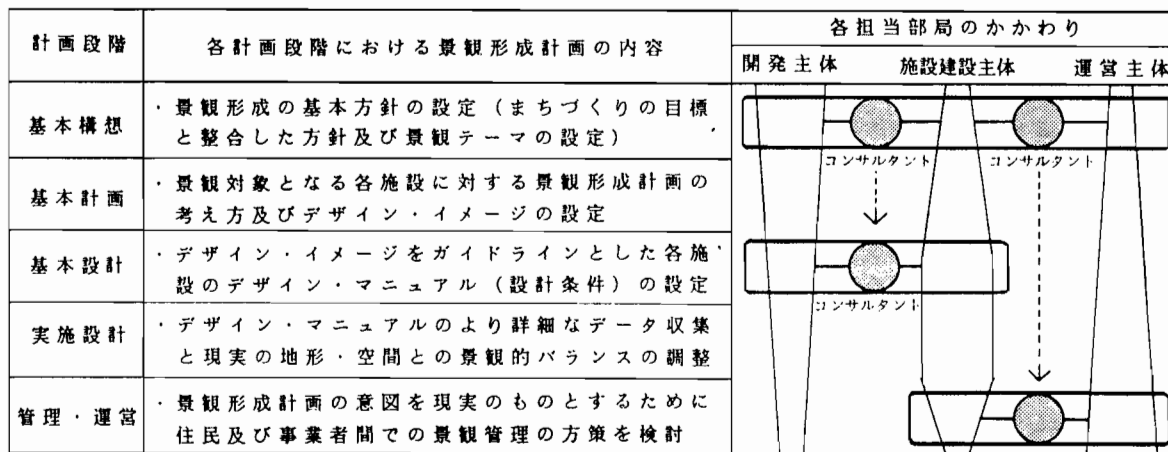 計画段階
各計画段階における景観形成計画の内容
各担当部局のかかわり
開発主体
施設建設主体
運営主体
基本構想
・景観形成の基本方針の設定（まちづくりの目標
と整合した方針及び景観テーマの設定）
コンサルタント
コンサルタント
基本計画
・景観対象となる各施設に対する景観形成計画の
考え方及びデザイン・イメージの設定
基本設計
・デザイン・イメージをガイドラインとした各施
設のデザイン・マニュアル（設計条件）の設定
コンサルタント
実施設計
・デザイン・マニュアルのより詳細なデータ収集
と現実の地形・空間との景観的バランスの調整
管理・運営
・景観形成計画の意図を現実のものとするために
住民及び事業者間での景観管理の方策を検討